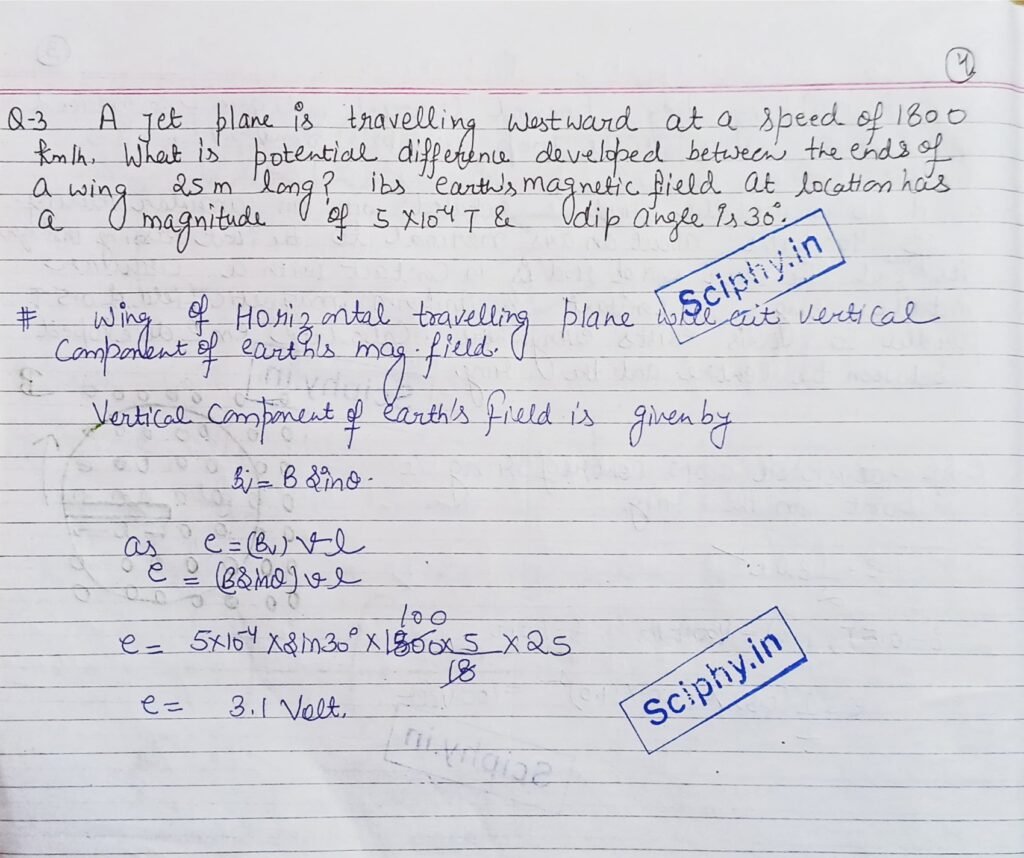 4
Q-3 A jet plane is travelling westward at a speed of 1800
km/h. What is potential difference developed between the ends of
a wing 25 m long? ibs earth's magnetic field at location has
a magnitude of 5 X10-4 T & dip angle is 30°.
Sciphy.in
# Wing of Horizontal travelling plane will cut vertical
Component of earth's mag. field.
Vertical Component of earth's field is given by
Bv = B Sinθ.
as e = (Bv) v l
e = (B Sinθ) v l
100
e = 5×10-4 × Sin30° × 1800 × 5 × 25
18
e = 3.1 Volt.
Sciphy.in